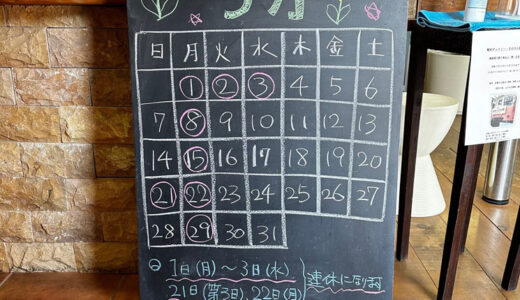 月
日 月 火 水 木 金 土
1 2 3 4 5 6
7 8 9 10 11 12 13
14 15 16 17 18 19 20
21 22 23 24 25 26 27
28 29 30 31
1日(月)〜3日(水)、
21日(第3日)、22日(月)
連休に